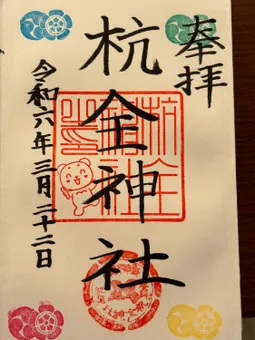 奉拝
杭全神社
令和六年三月二十二日